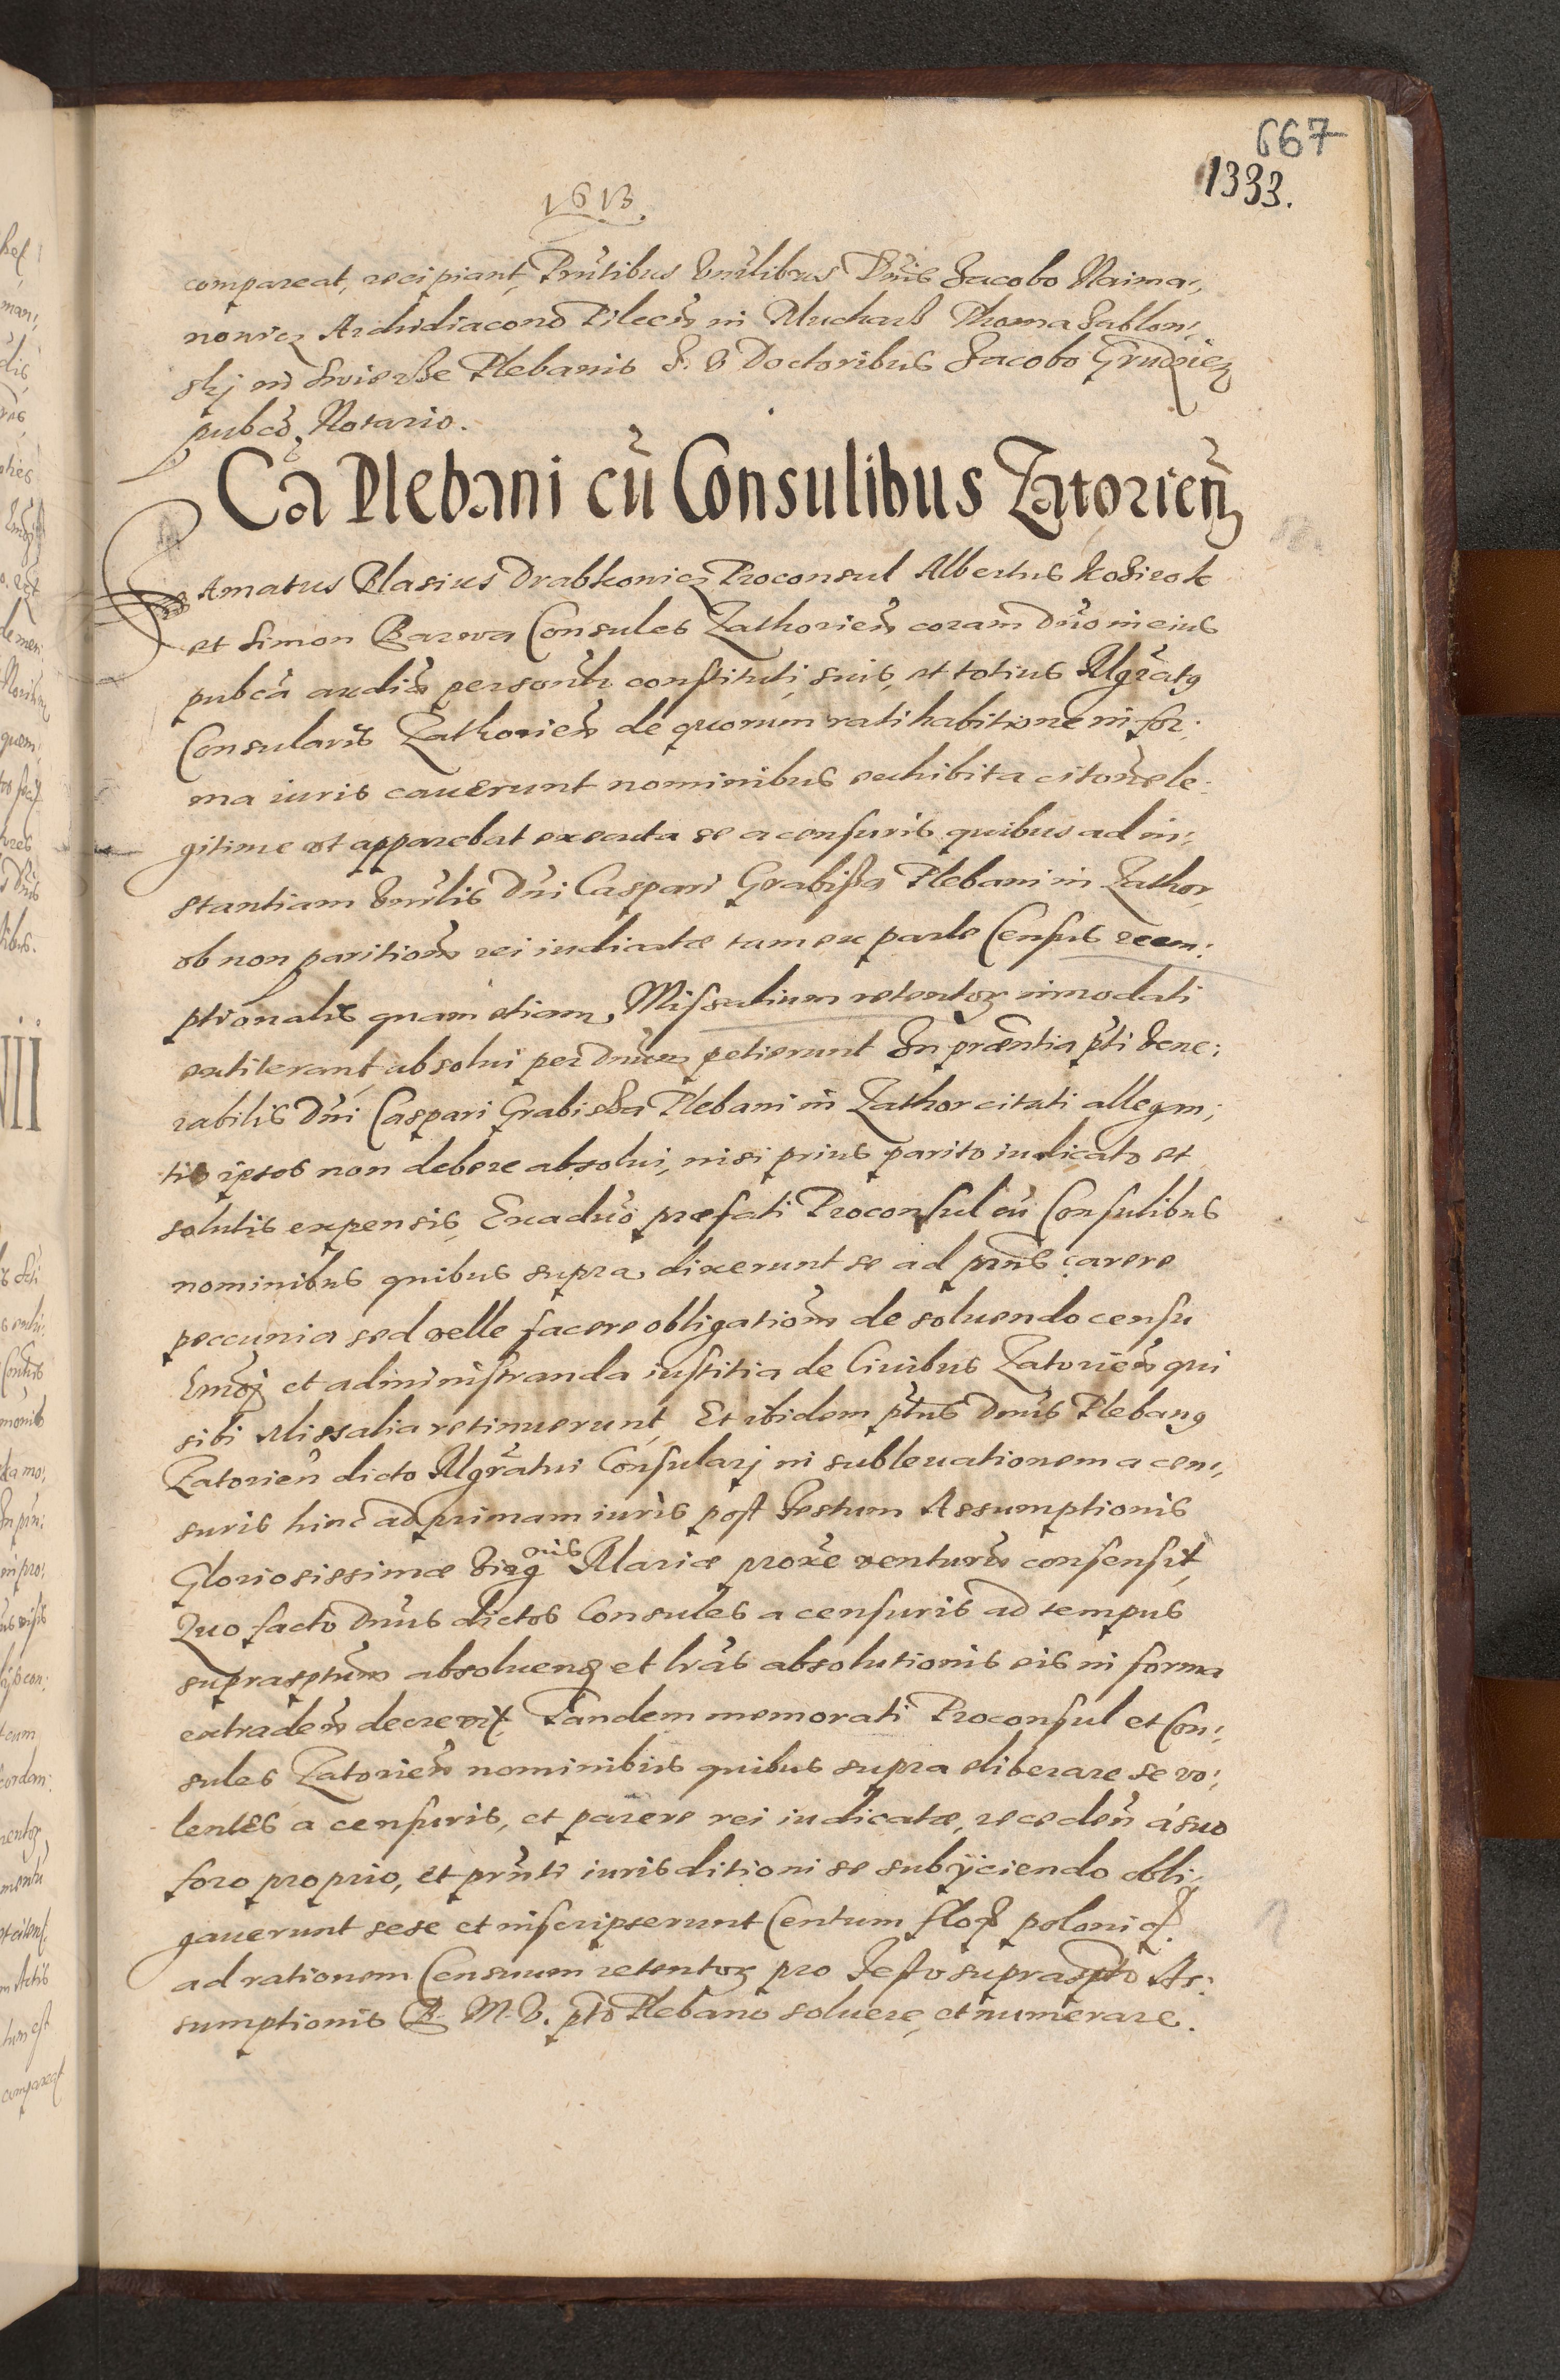 667
1333.
1613.
compareat, recipiant, Pñtibus Vnlibus Dñis Jacobo Naima,,
nowicz Archidiacono Pilecñ in Mucharz Thoma Jablon,,
skj in Swierze Plebanis S. T. Doctoribus Jacobo Grudzicz
pubco Notario.
Ca Plebani cũ Consulibus Zatorieñ
Famatus Blasius Drabkowicz Proconsul Albertus Kosirok
et Simon Barwa Consules Zathorieñ coram Dño in eius
pubca audieñ personlr constituti, suis, et totius Mgratg
Consularis Zathorieñ de quorum ratihabitione in for:
ma iuris cauerunt nominibus exhibita citatione le:
gitime ut apparebat executa se a censuris quibus ad in:
stantiam Vnlis Dñi Caspari Grabissa Plebani in Zathor,
ob non paritionẽ rei iudicatæ tum ex parte Census reem:
ptionalis quam etiam, Missalium retentor innodati
extiterant absolui per Dñum petierunt In præntia pti Vene:
rabilis Dñi Caspari Grabissa Plebani in Zathor citati allegan,
tis ipsos non debere absolui, nisi prius parito iudicato et
solutis expensis, Exaduo præfati Proconsul cũ Consulibus
nominibus quibus supra dixerunt se ad prñs carere
peccunia sed velle facere obligationẽ de soluendo censu
Emõj et administranda iustitia de Ciuibus Zatorieñ qui
sibi Missalia retinuerunt, Et ibidem ptus Dnus Plebang
Zatorieñ dicto Mgratui Consularj in subleuationem a cen,,
suris hinc ad primam iuris post Festum Assumptionis
Gloriosissimæ Virgnis Mariæ proxe venturũ consensit,
Quo facto Dnus dictos Consules a censuris ad tempus
suprasptum absoluend et lras absolutionis eis in forma
extradeñ decrevit. Tandem memorati Proconsul et Con,,
sules Zatorieñ nominibus quibus supra eliberare se vo,,
lentes a censuris, et parere rei iudicatæ, recedeñ á suo
foro proprio, et prñti iurisditioni se subÿciendo obli,,
gauerunt sese et inscripserunt Centum floꝝ polonicꝝ
ad rationem Censuum retentoꝝ pro Festo suprascpto As:
sumptionis B. M. V. pto Plebano soluere, et numerare.